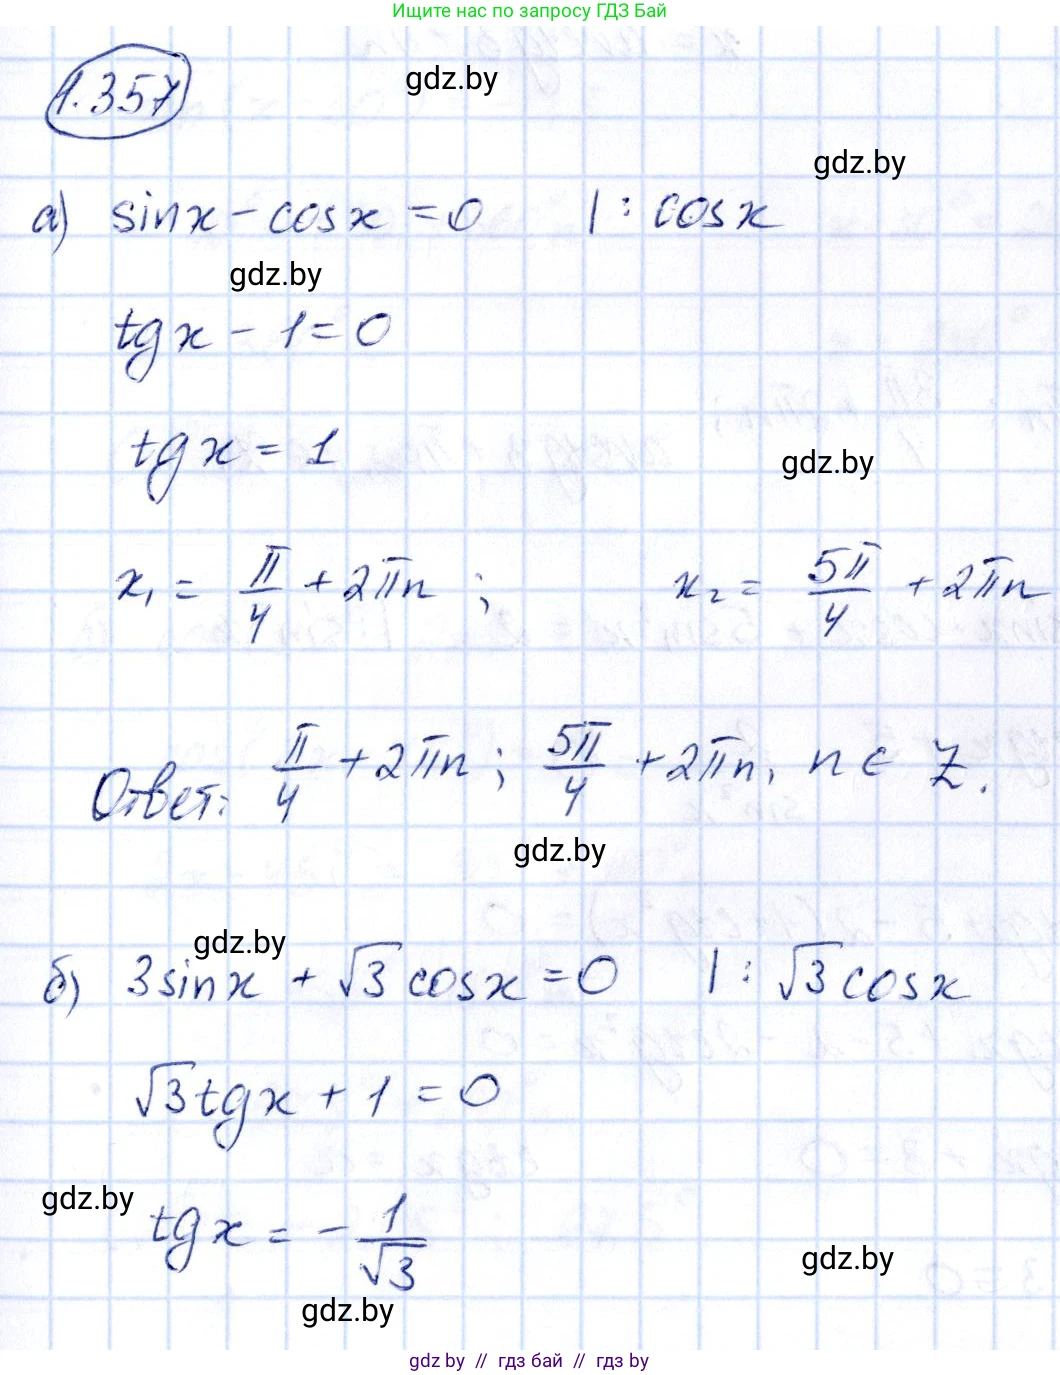 Ищите нас по запросу ГДЗ Бай
1.357
gdz.by
gdz.by
а) sinx - cosx = 0 | : cosx
gdz.by
tgx - 1 = 0
tgx = 1
gdz.by
x₁ = π/4 + 2πn ; x₂ = 5π/4 + 2πn
Ответ: π/4 + 2πn ; 5π/4 + 2πn, n ∈ Z.
gdz.by
gdz.by
б) 3sinx + √3 cosx = 0 | : √3 cosx
√3 tgx + 1 = 0
gdz.by
tgx = - 1/√3
gdz.by
gdz.by
gdz by // гдз бай // гдз by